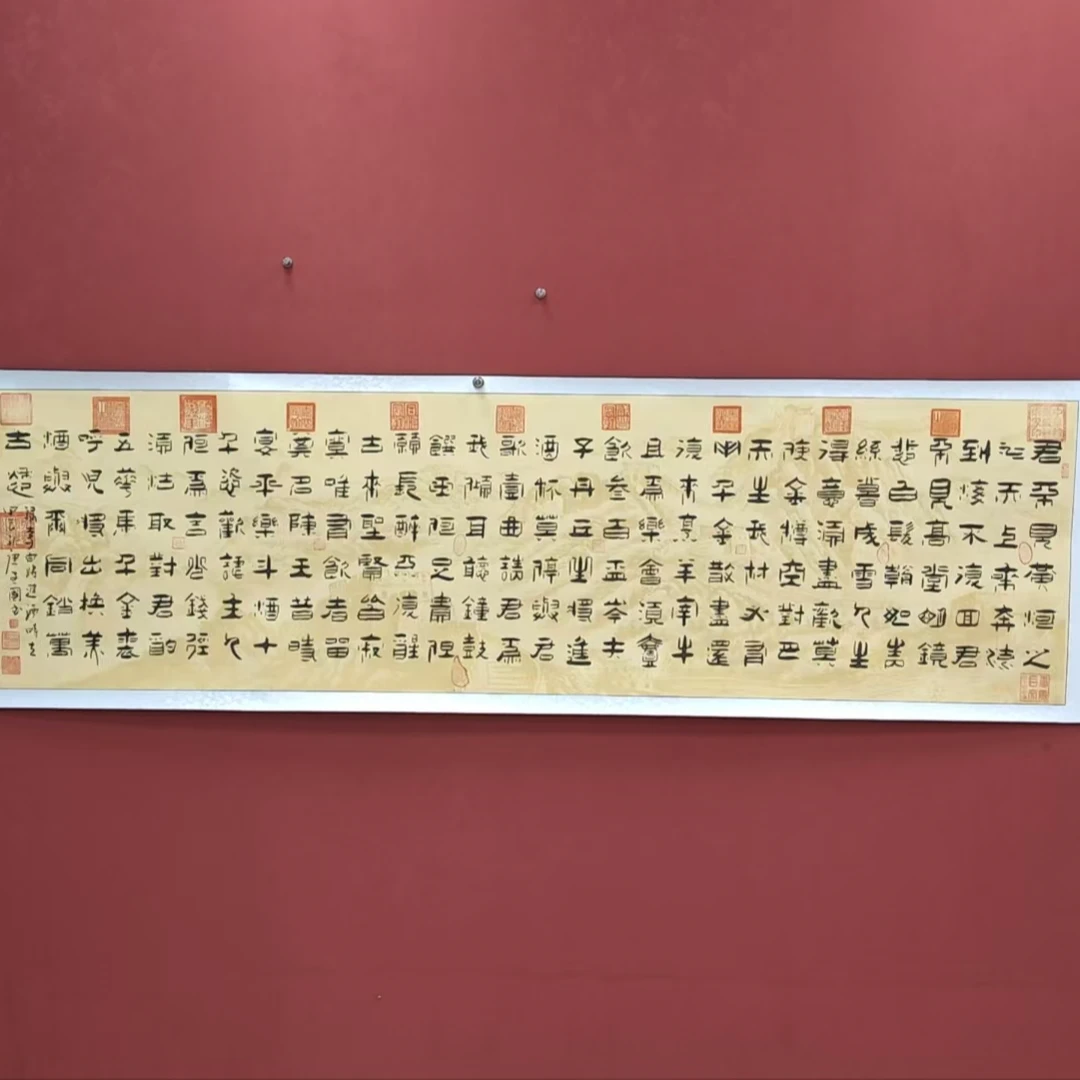 君不見黃河之
水天上來奔流
到海不復回君
不見高堂明鏡
悲白髮朝如青
絲暮成雪人生
得意須盡歡莫
使金樽空對月
天生我材必有
用千金散盡還
復來烹羊宰牛
且爲樂會須壹
飲叁百盃岑夫
子丹丘生將進
酒杯莫停與君
歌壹曲請君爲
我傾耳聽鐘鼓
饌玉何足貴但
願長醉不復醒
古來聖賢皆寂
寞唯有飲者留
其名陳王昔時
宴平樂斗酒十
千恣歡謔主人
何爲言少錢徑
須沽取對君酌
五華馬千金裘
呼兒將出換美
酒與爾同銷萬
古愁